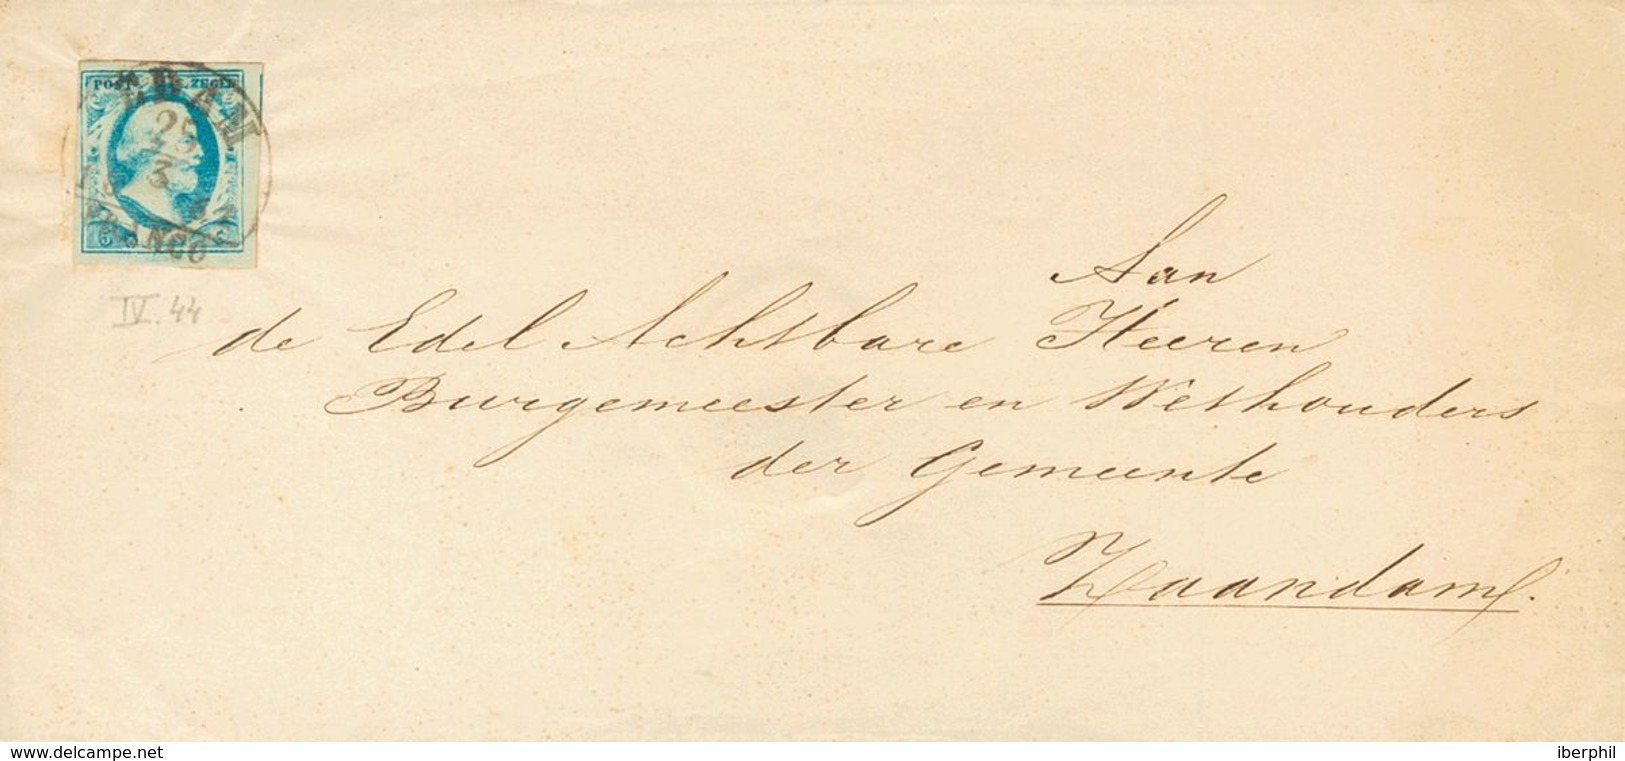 POST ZEGEL
EDAM
25
3
FRANCO
IV. 44
Aan
de Edel Achtbare Heeren
Burgemeester en Wethouders
der Gemeente
Zaandam.
www.delcampe.net
iberphil